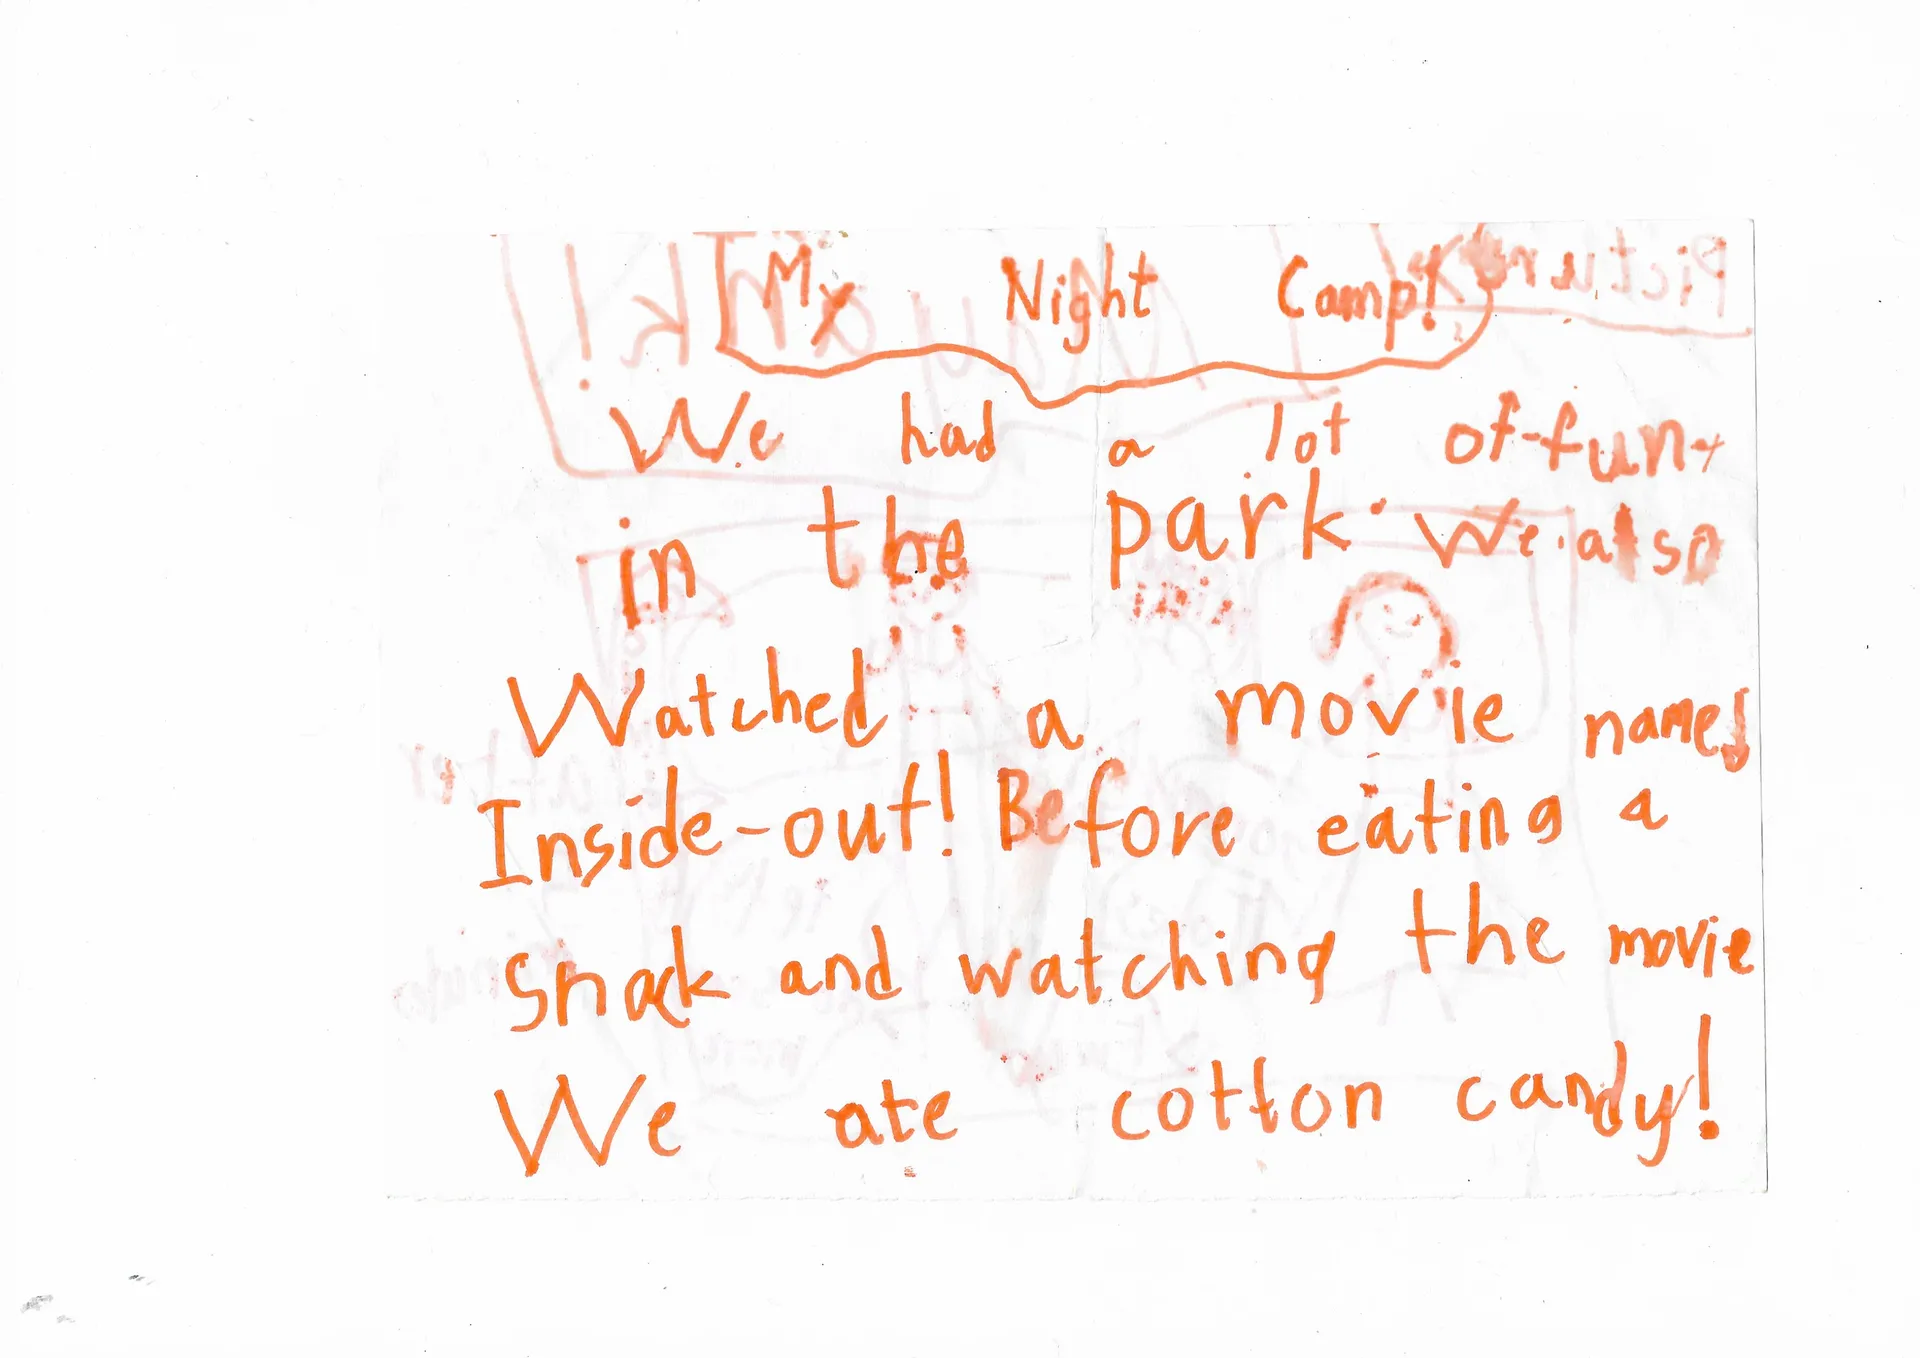 My Night Camp!
We had a lot of fun
in the park. We also
Watched a movie named
Inside-out! Before eating a
Snack and watching the movie
We ate cotton candy!